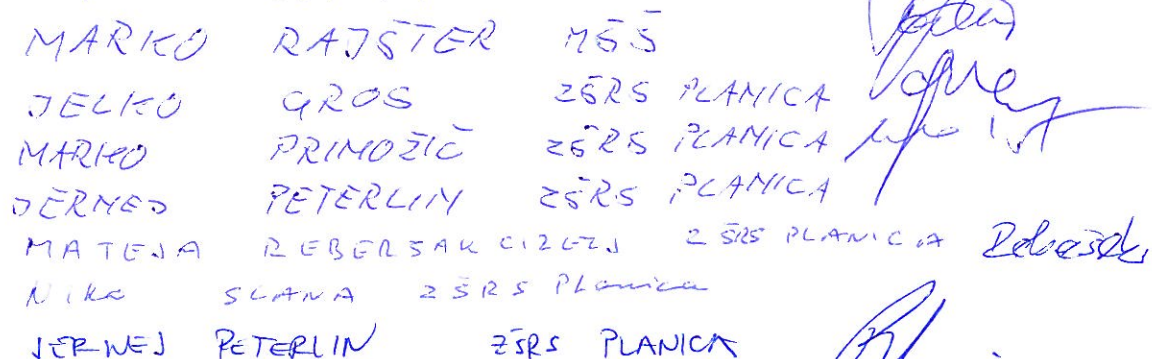 MARKO RAJŠTER MŠŠ
JELKO GROS ZŠRS PLANICA
MARKO PRIMOŽIČ ZŠRS PLANICA
JERNEJ PETERLIN ZŠRS PLANICA
MATEJA REBERŠAK CIZELJ ZŠRS PLANICA
NIKA SLANA ZŠRS Planica
JERNEJ PETERLIN ZŠRS PLANICA